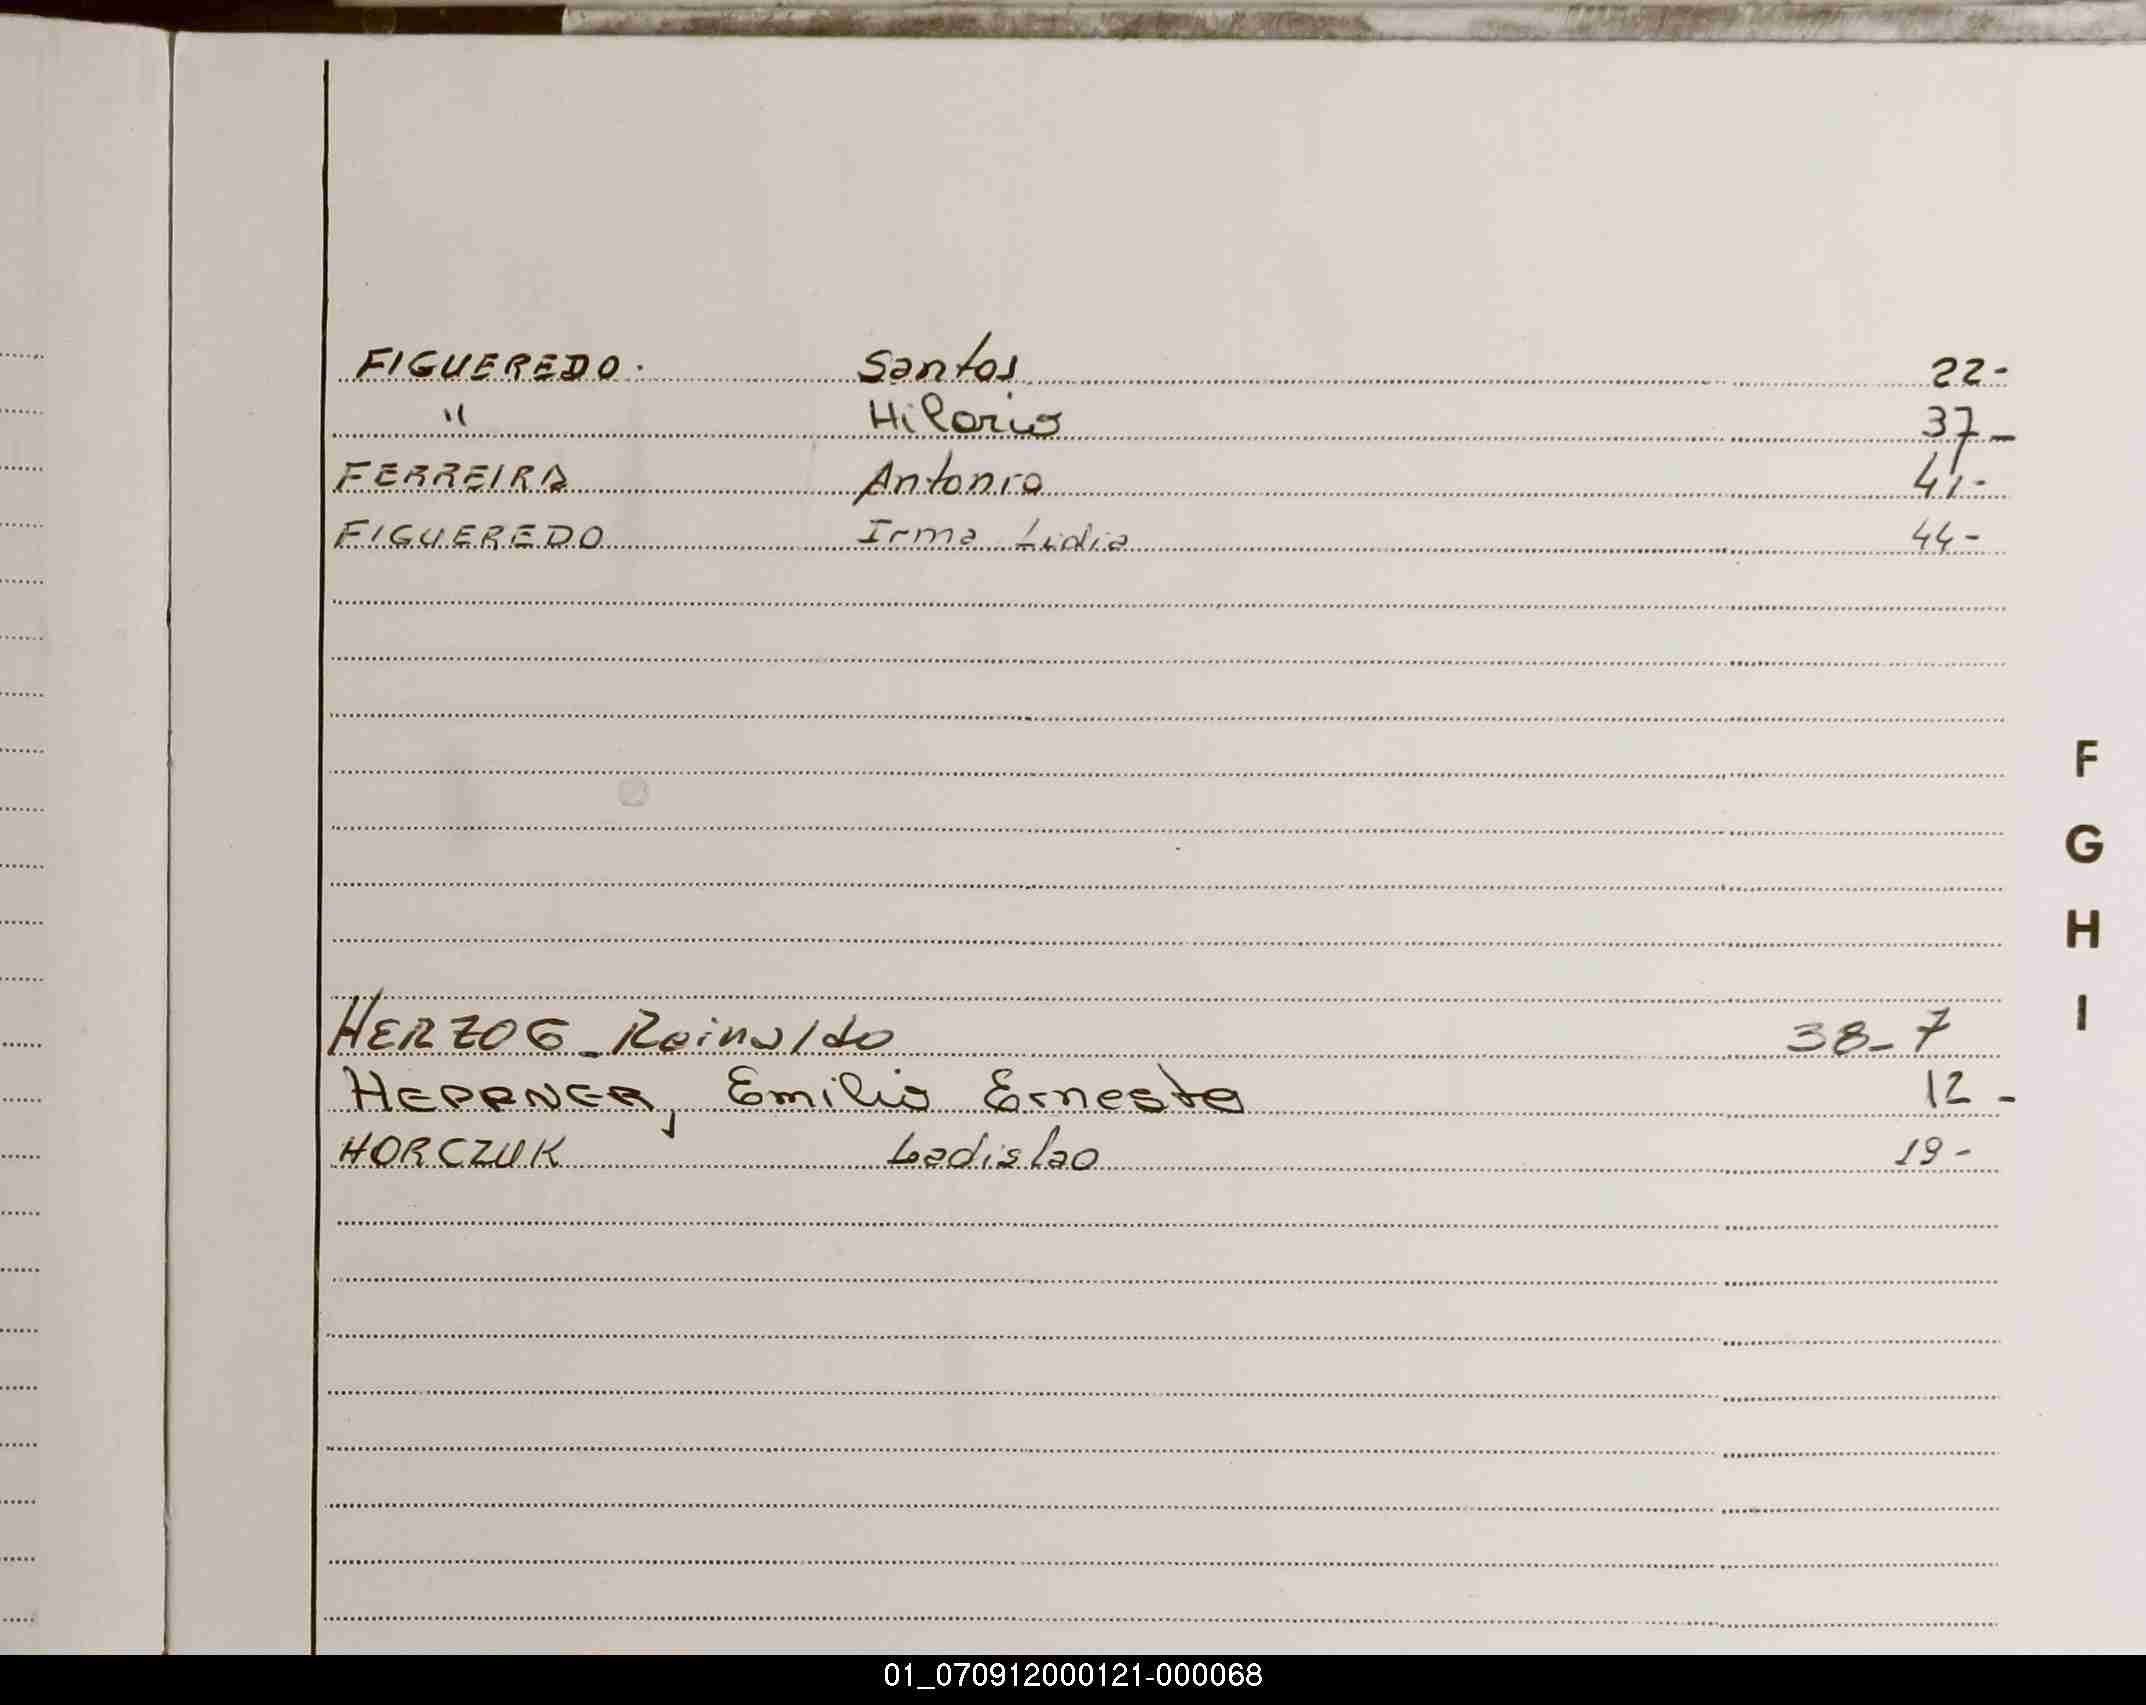 FIGUEREDO. Santos 22-
" Hilario 37-
FERREIRA Antonio 41-
FIGUEREDO Irma Lidia 44-
F
G
H
I
HERZOG - Reinaldo 38-7
HEPRNER, Emilio Ernesto 12-
HORCZUK Ladislao 19-
01_070912000121-000068